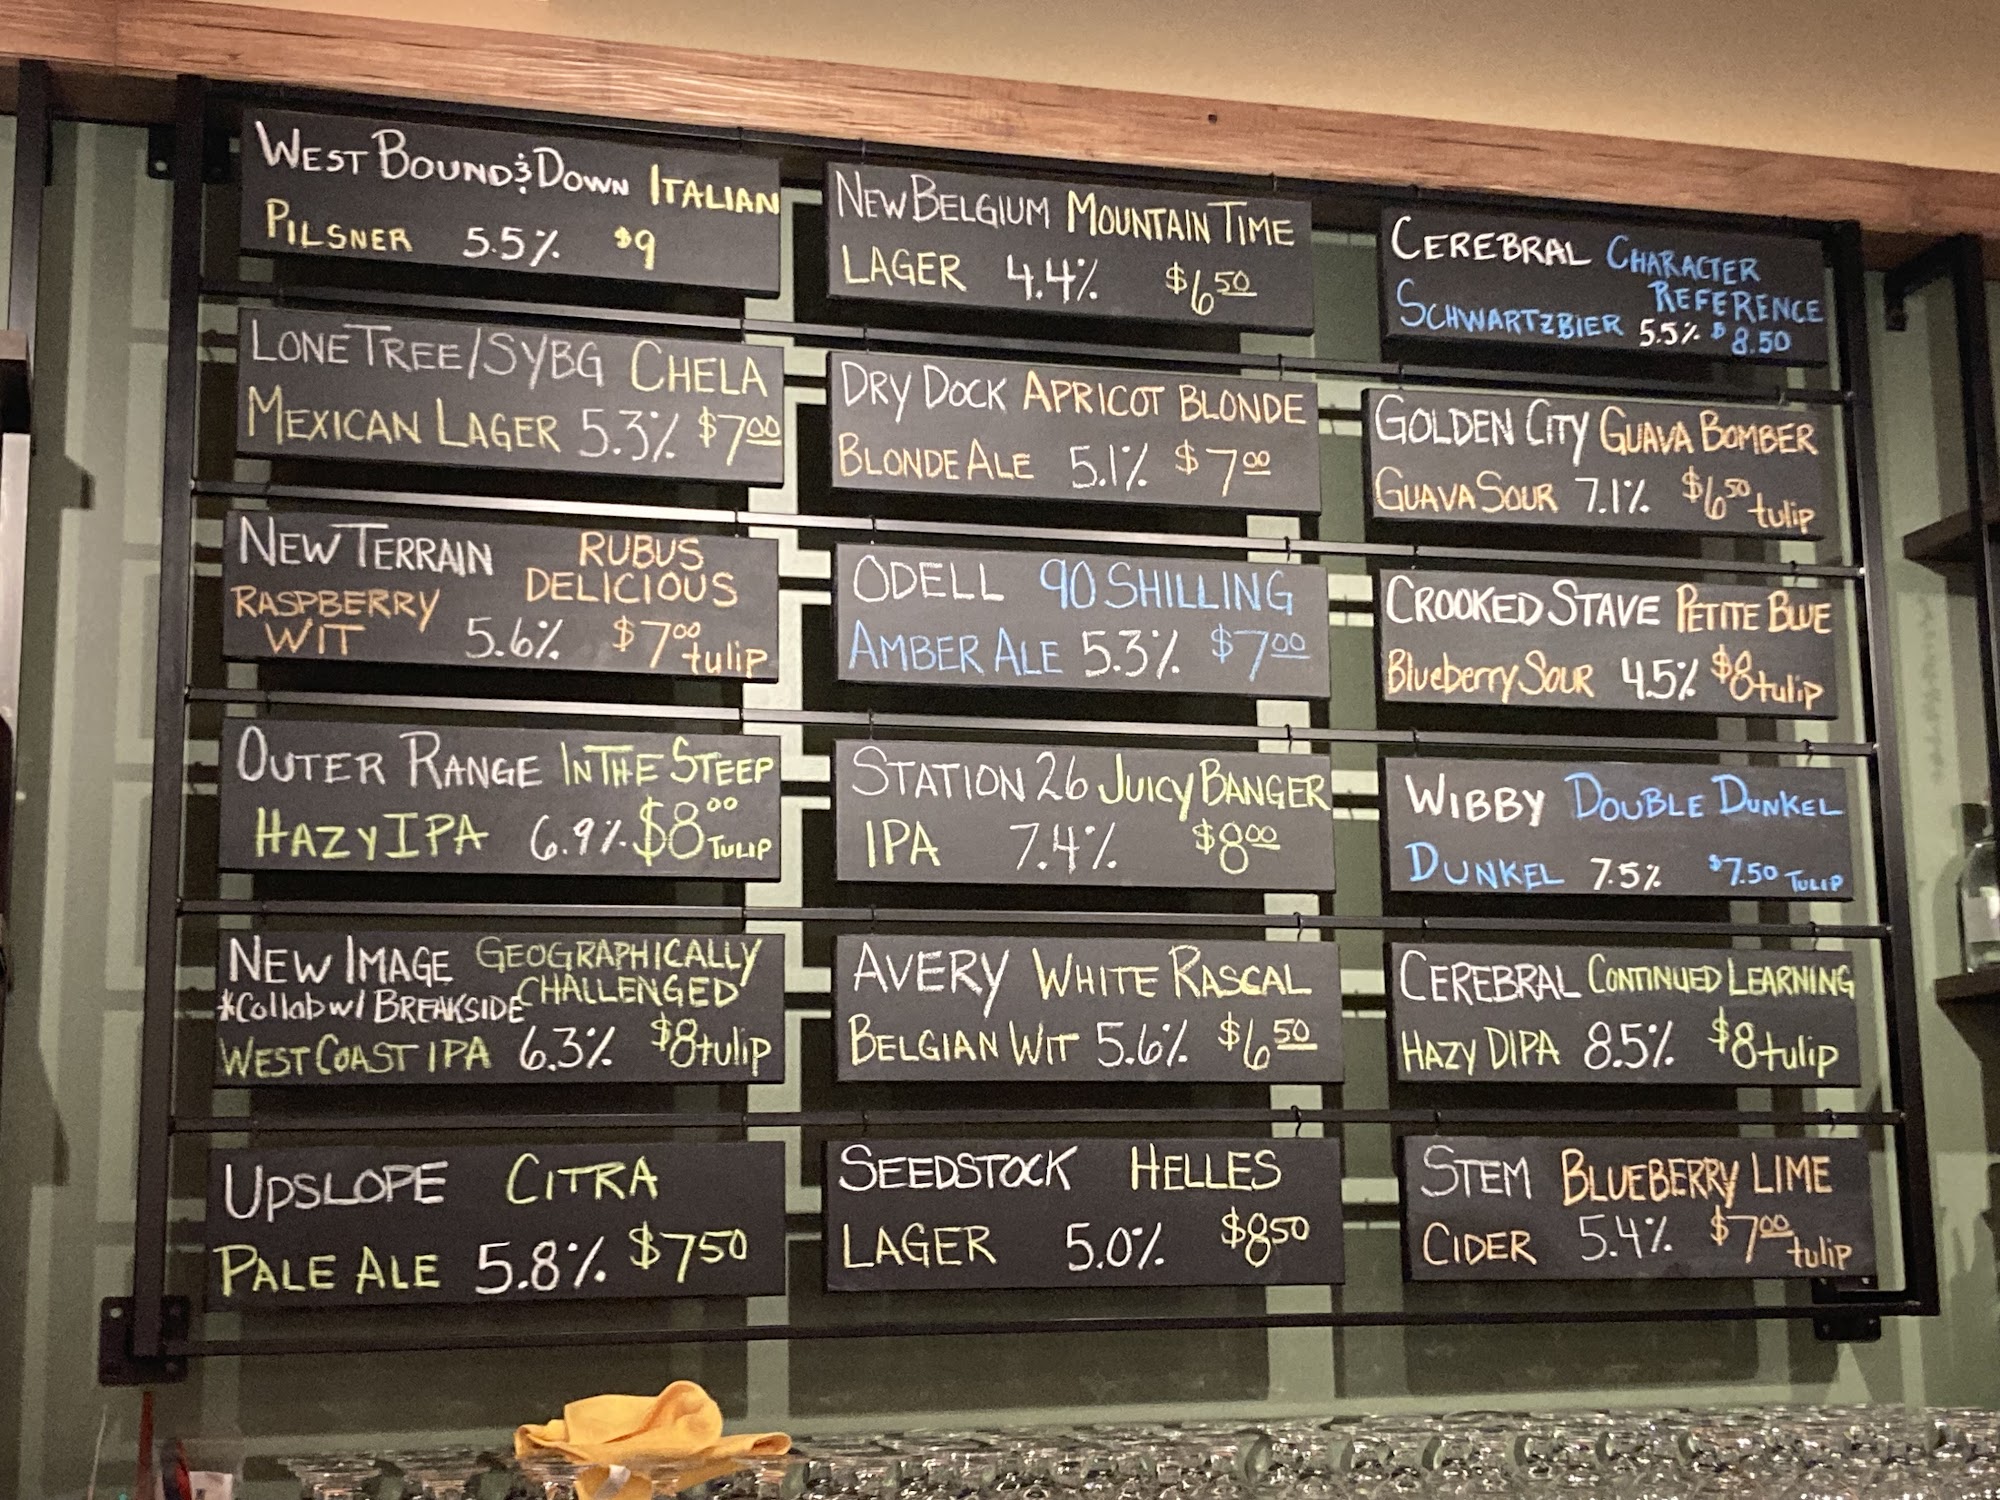 West Bound & Down Italian
Pilsner 5.5% $9
Lone Tree/SYBG Chela
Mexican Lager 5.3% $7.00
New Terrain Rubus
Delicious
Raspberry
Wit 5.6% $7.00 tulip
Outer Range In The Steep
Hazy IPA 6.9% $8.00 Tulip
New Image Geographically
Challenged
*Collab w/ Breakside
West Coast IPA 6.3% $8 tulip
Upslope Citra
Pale Ale 5.8% $7.50
New Belgium Mountain Time
Lager 4.4% $6.50
Dry Dock Apricot Blonde
Blonde Ale 5.1% $7.00
Odell 90 Shilling
Amber Ale 5.3% $7.00
Station 26 Juicy Banger
IPA 7.4% $8.00
Avery White Rascal
Belgian Wit 5.6% $6.50
Seedstock Helles
Lager 5.0% $8.50
Cerebral Character
Reference
Schwartzbier 5.5% $8.50
Golden City Guava Bomber
Guava Sour 7.1% $6.50 tulip
Crooked Stave Petite Blue
Blueberry Sour 4.5% $8 tulip
Wibby Double Dunkel
Dunkel 7.5% $7.50 Tulip
Cerebral Continued Learning
Hazy DIPA 8.5% $8 tulip
Stem Blueberry Lime
Cider 5.4% $7.00 tulip